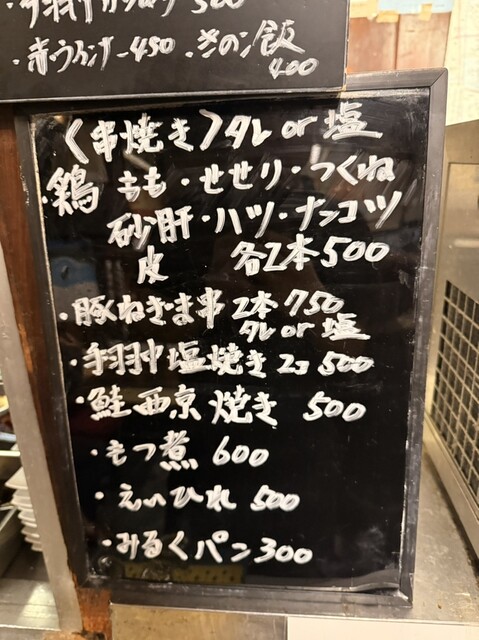 500
・赤ウインナー450 ・きのこ飯
400
〈串焼き〉タレ or 塩
・鶏 もも・せせり・つくね
砂肝・ハツ・ナンコツ
皮 各2本500
・豚ねぎま串 2本750
タレ or 塩
・手羽中塩焼き 2コ 500
・鮭西京焼き 500
・もつ煮 600
・えいひれ 500
・みるくパン300